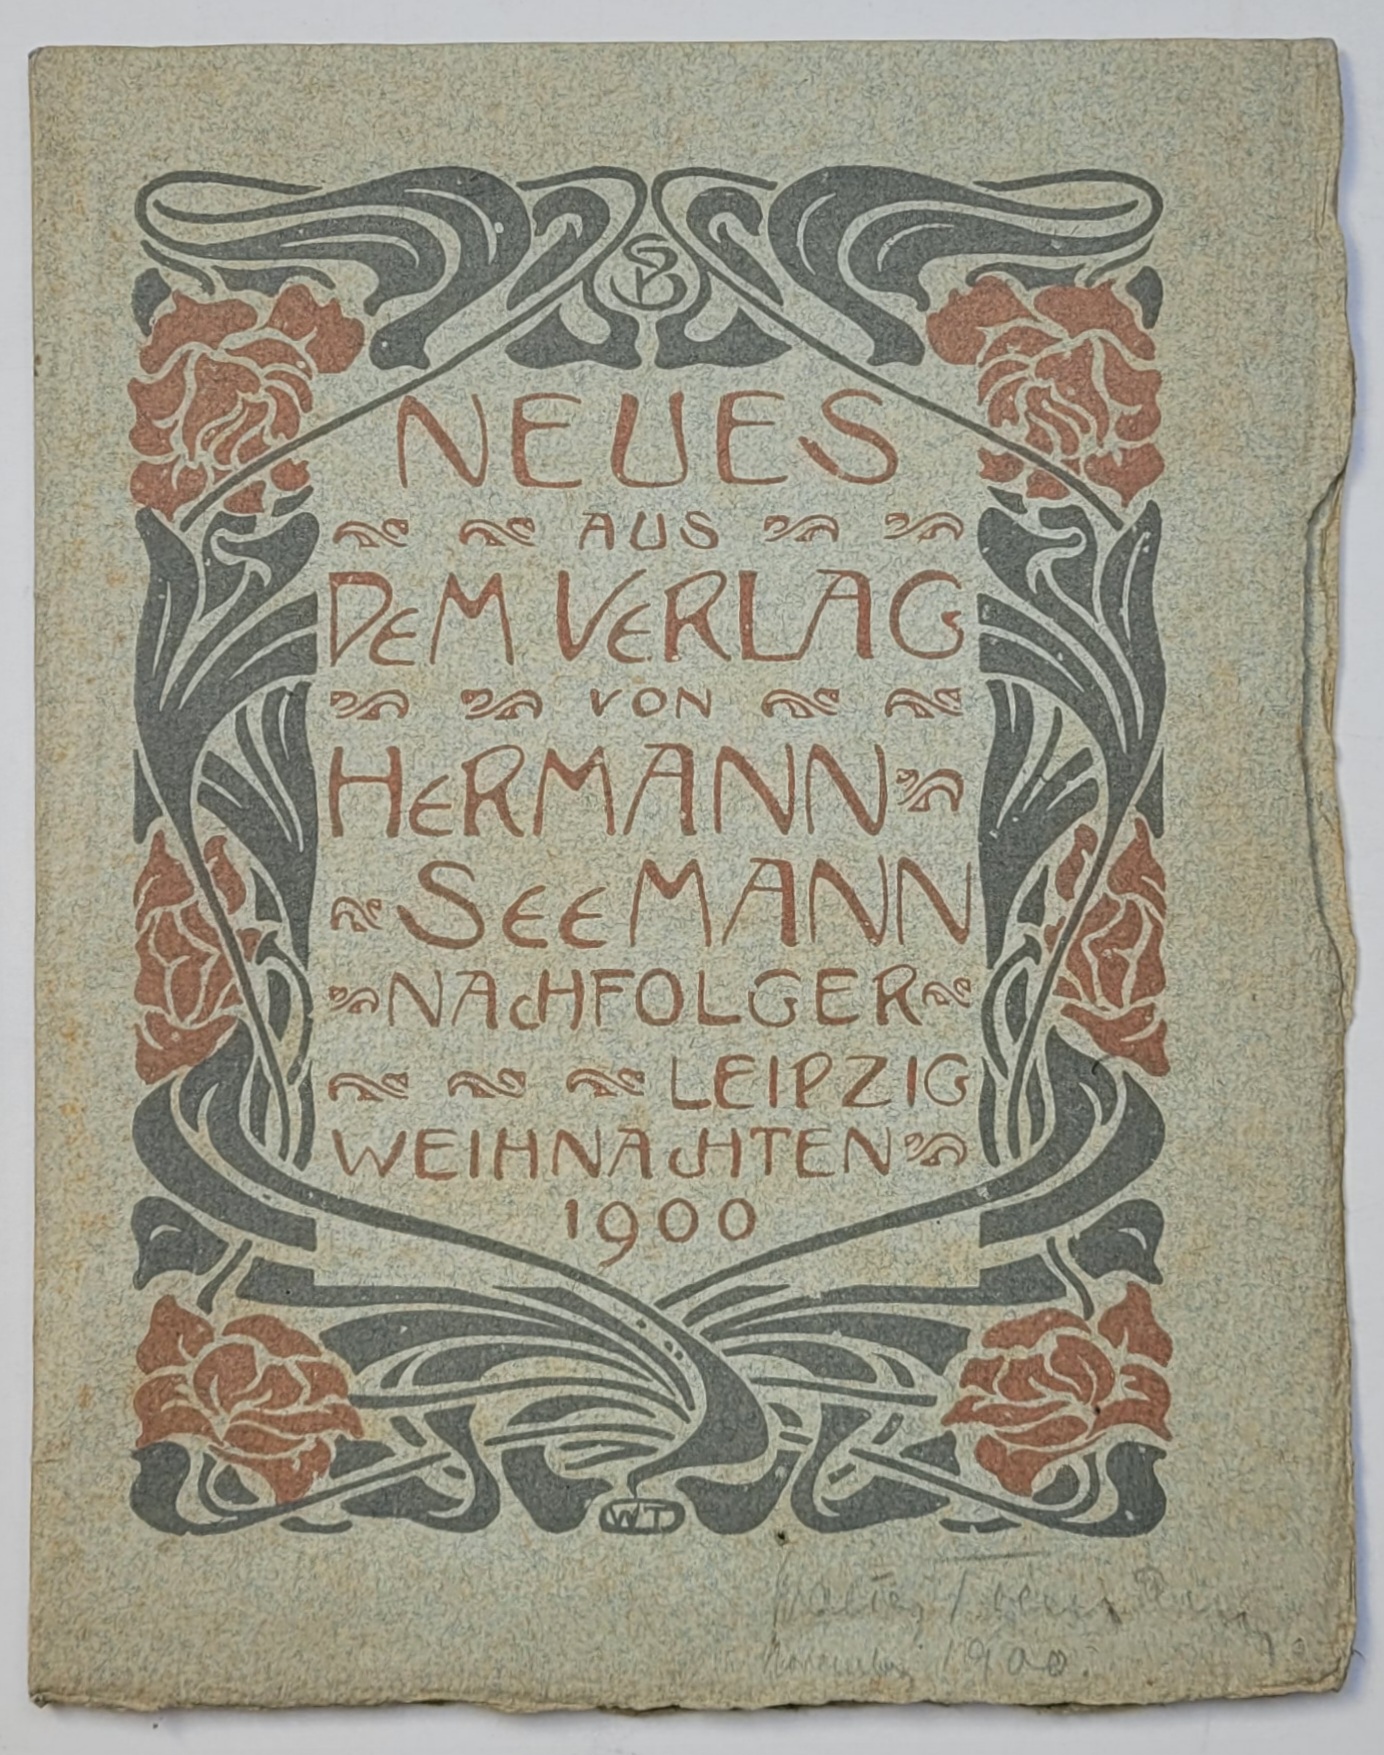 NEUES
AUS
DEM VERLAG
VON
HERMANN
SEEMANN
NACHFOLGER
LEIPZIG
WEIHNACHTEN
1900
WT
November 1900.